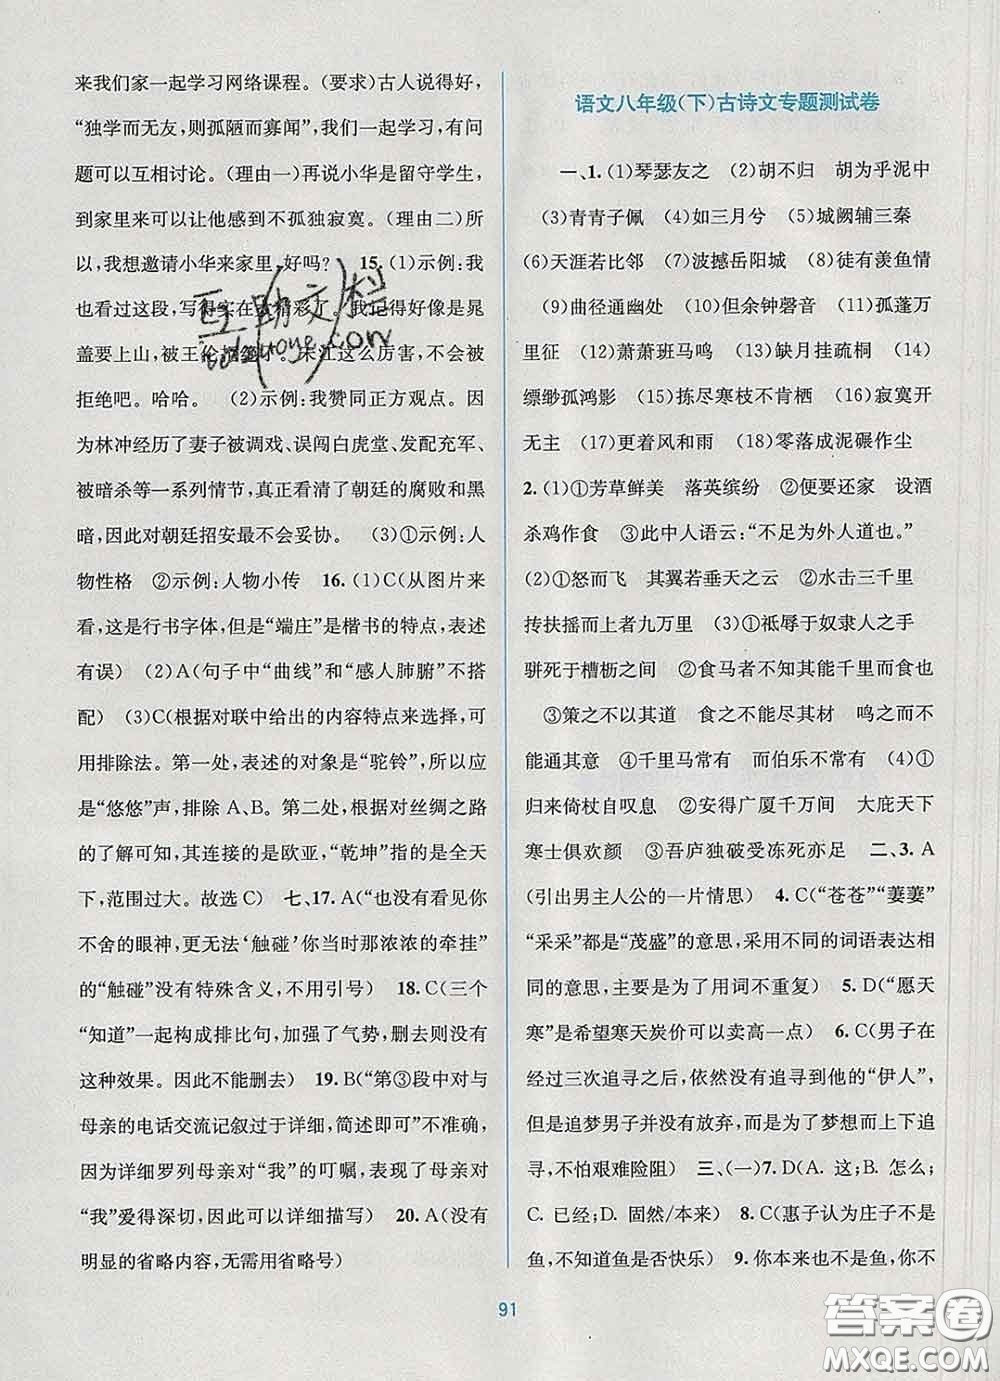 来我们家一起学习网络课程。(要求)古人说得好，
“独学而无友，则孤陋而寡闻”，我们一起学习，有问
题可以互相讨论。(理由一)再说小华是留守学生，
到家里来可以让他感到不孤独寂寞。(理由二)所
以，我想邀请小华来家里，好吗？ 15. (1)示例：我
也看过这段，写得实在太精彩了。我记得好像是晁
盖要上山，被王伦拒绝了。宋江这么厉害，不会被
拒绝吧。哈哈。 (2)示例：我赞同正方观点。因
为林冲经历了妻子被调戏、误闯白虎堂、发配充军、
被暗杀等一系列情节，真正看清了朝廷的腐败和黑
暗，因此对朝廷招安最不会妥协。 (3)①示例：人
物性格 ②示例：人物小传 16. (1)C(从图片来
看，这是行书字体，但是“端庄”是楷书的特点，表述
有误) (2)A(句子中“曲线”和“感人肺腑”不搭
配) (3)C(根据对联中给出的内容特点来选择，可
用排除法。第一处，表述的对象是“驼铃”，所以应
是“悠悠”声，排除 A、B。第二处，根据对丝绸之路
的了解可知，其连接的是欧亚，“乾坤”指的是全天
下，范围过大。故选 C) 七、17. A(“也没有看见你
不舍的眼神，更无法‘触碰’你当时那浓浓的牵挂”
的“触碰”没有特殊含义，不用引号) 18. C(三个
“知道”一起构成排比句，加强了气势，删去就没有
这种效果。因此不能删去) 19. B(“第③段中对与
母亲的电话交流记叙过于详细，影响表达”不正确，
因为详细罗列母亲对“我”的叮嘱，表现了母亲对
“我”爱得深切，因此可以详细描写) 20. A(没有
明显的省略内容，无需用省略号)
语文八年级(下)古诗文专题测试卷
一、1. (1)琴瑟友之 (2)胡不归 胡为乎泥中
(3)青青子佩 (4)如三月兮 (5)城阙辅三秦
(6)天涯若比邻 (7)波撼岳阳城 (8)徒有羡鱼情
(9)曲径通幽处 (10)但余钟磬音 (11)孤蓬万
里征 (12)萧萧班马鸣 (13)缺月挂疏桐 (14)
缥缈孤鸿影 (15)拣尽寒枝不肯栖 (16)寂寞开
无主 (17)更着风和雨 (18)零落成泥碾作尘
2. (1)①芳草鲜美 落英缤纷 ②便要还家 设酒
杀鸡作食 ③此中人语云：“不足为外人道也。”
(2)①怒而飞 其翼若垂天之云 ②水击三千里
抟扶摇而上者九万里 (3)①祗辱于奴隶人之手
骈死于槽枥之间 ②食马者不知其能千里而食也
③策之不以其道 食之不能尽其材 鸣之而不
能通其意 ④千里马常有 而伯乐不常有 (4)①
归来倚杖自叹息 ②安得广厦千万间 大庇天下
寒士俱欢颜 ③吾庐独破受冻死亦足 二、3. A
(引出男主人公的一片情思) 4. C(“苍苍”“萋萋”
“采采”都是“茂盛”的意思，采用不同的词语表达相
同的意思，主要是为了用词不重复) 5. D(“愿天
寒”是希望寒天炭价可以卖高一点) 6. C(男子在
经过三次追寻之后，依然没有追寻到他的“伊人”，
但是追梦男子并没有放弃，而是为了梦想而上下追
寻，不怕艰难险阻) 三、(一)7. D(A. 这；B. 怎么；
C. 已经；D. 固然/本来) 8. C(惠子认为庄子不是
鱼，不知道鱼是否快乐) 9. 你本来也不是鱼，你不
91
互助文档
答案圈
MXQE.COM